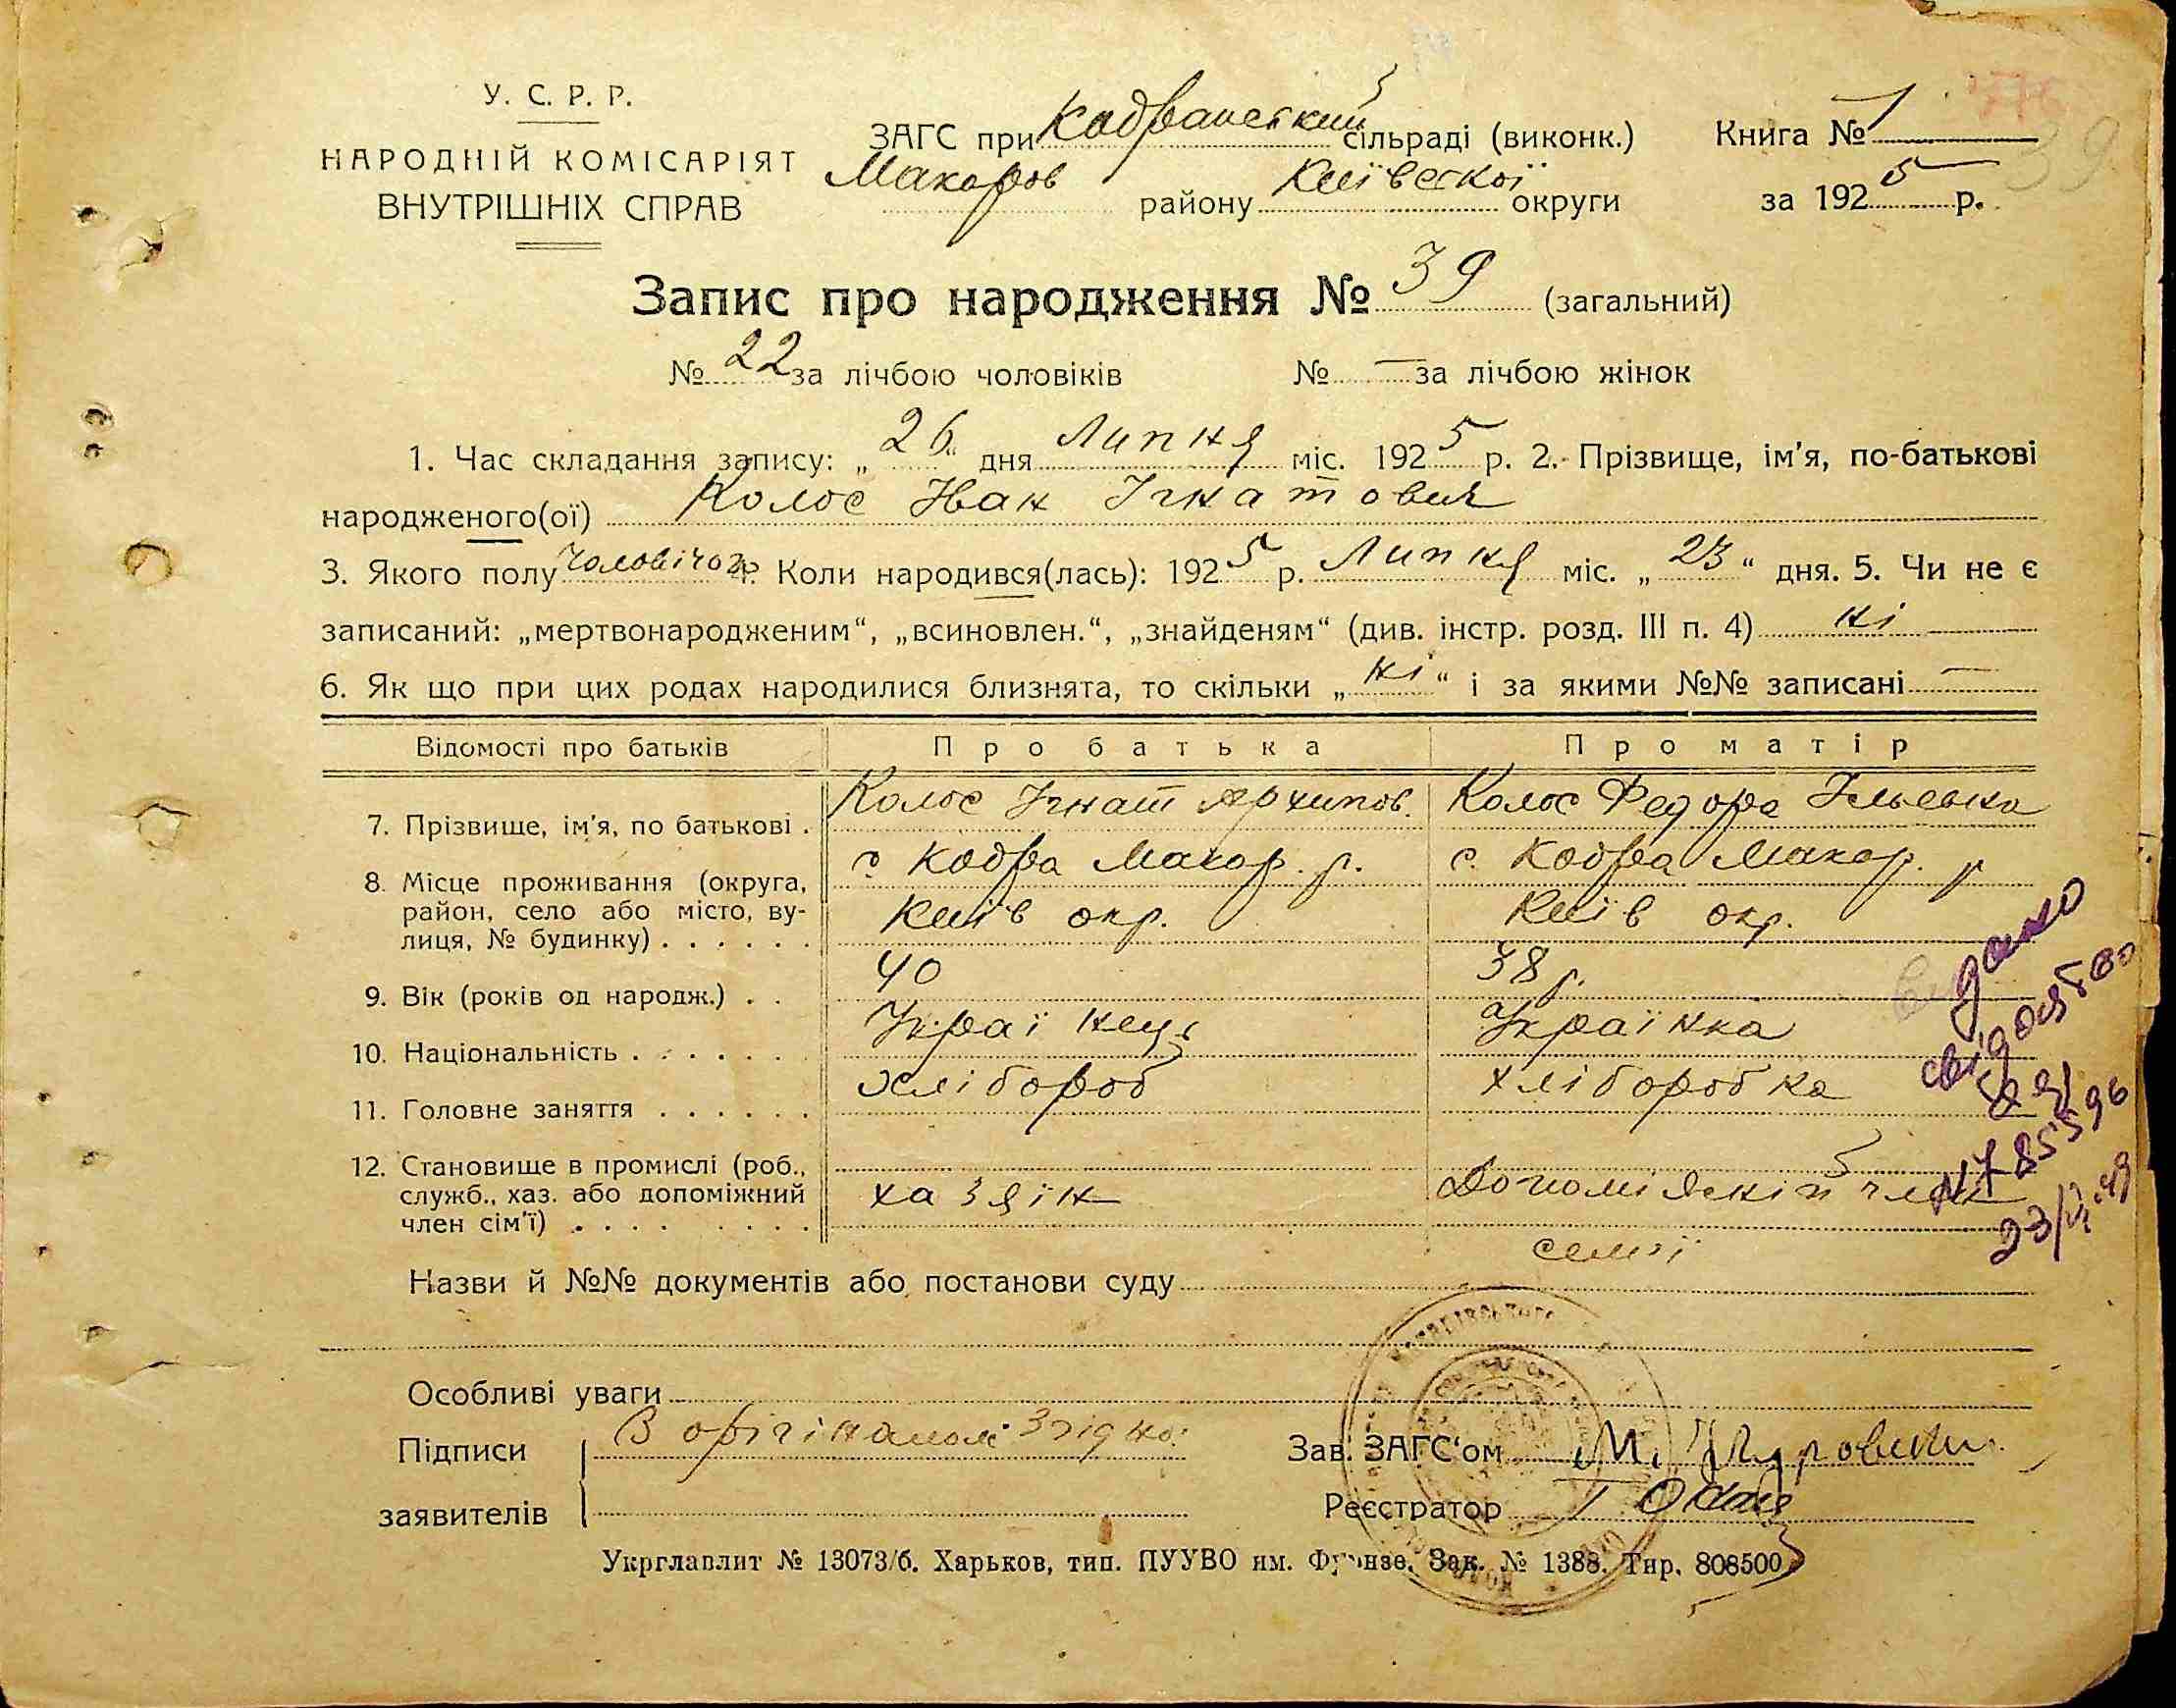 У. С. Р. Р.
НАРОДНІЙ КОМІСАРІЯТ
ВНУТРІШНІХ СПРАВ
ЗАГС при Кодранский сільраді (виконк.)
Макаров району Київскої округи
Книга № 1
за 1925 р.
39
Запис про народження № 39 (загальний)
№ 22 за лічбою чоловіків № — за лічбою жінок
1. Час складання запису: „26“ дня Липня міс. 1925 р. 2. Прізвище, ім'я, по-батькові
народженого(ої) Колос Іван Ігнатович
3. Якого полу чоловічог 4. Коли народився(лась): 1925 р. Липня міс. „23“ дня. 5. Чи не є
записаний: „мертвонародженим“, „всиновлен.“, „знайденям“ (див. інстр. розд. III п. 4) ні
6. Як що при цих родах народилися близнята, то скільки „ні“ і за якими №№ записані —
Відомості про батьків Про батька Про матір
7. Прізвище, ім'я, по батькові . Колос Ігнат Архипов. Колос Федора Ільевна
8. Місце проживання (округа, с Кодра Макар. р. с. Кодра Макар. р
район, село або місто, ву-
лиця, № будинку) . . . . . . Київ окр. Київ окр.
9. Вік (років од народж.) . . 40 38 р.
10. Національність . . . . . . . Українець Українка
11. Головне заняття . . . . . . хлібороб хліборобка
12. Становище в промислі (роб.,
служб., хаз. або допоміжний хазяїн Допоміжній член
член сім'ї) . . . . . . . . . семї
видано
свідоцтво
№ 785596
23/VI 49
Назви й №№ документів або постанови суду
Особливі уваги
Підписи З орігіналом згідно: Зав. ЗАГС'ом М.
заявителів Реєстратор
Укрглавлит № 13073/б. Харьков, тип. ПУУВО им. Фрунзе. Зак. № 1388. Тир. 808500